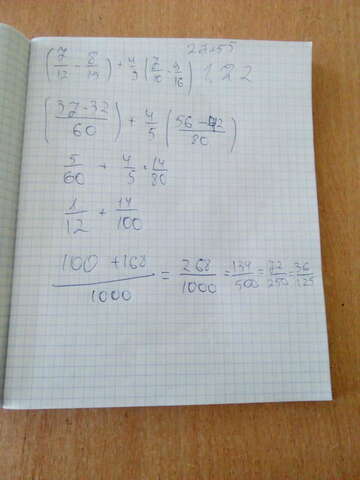 27+55
(7/12 - 8/15) + 4/5 (7/10 - 9/16) 1,2 2
(37-32/60) + 4/5 (56-42/80)
5/60 + 4/5 · 14/80
1/12 + 14/100
100+168/1000 = 268/1000 = 134/500 = 72/250 = 36/125